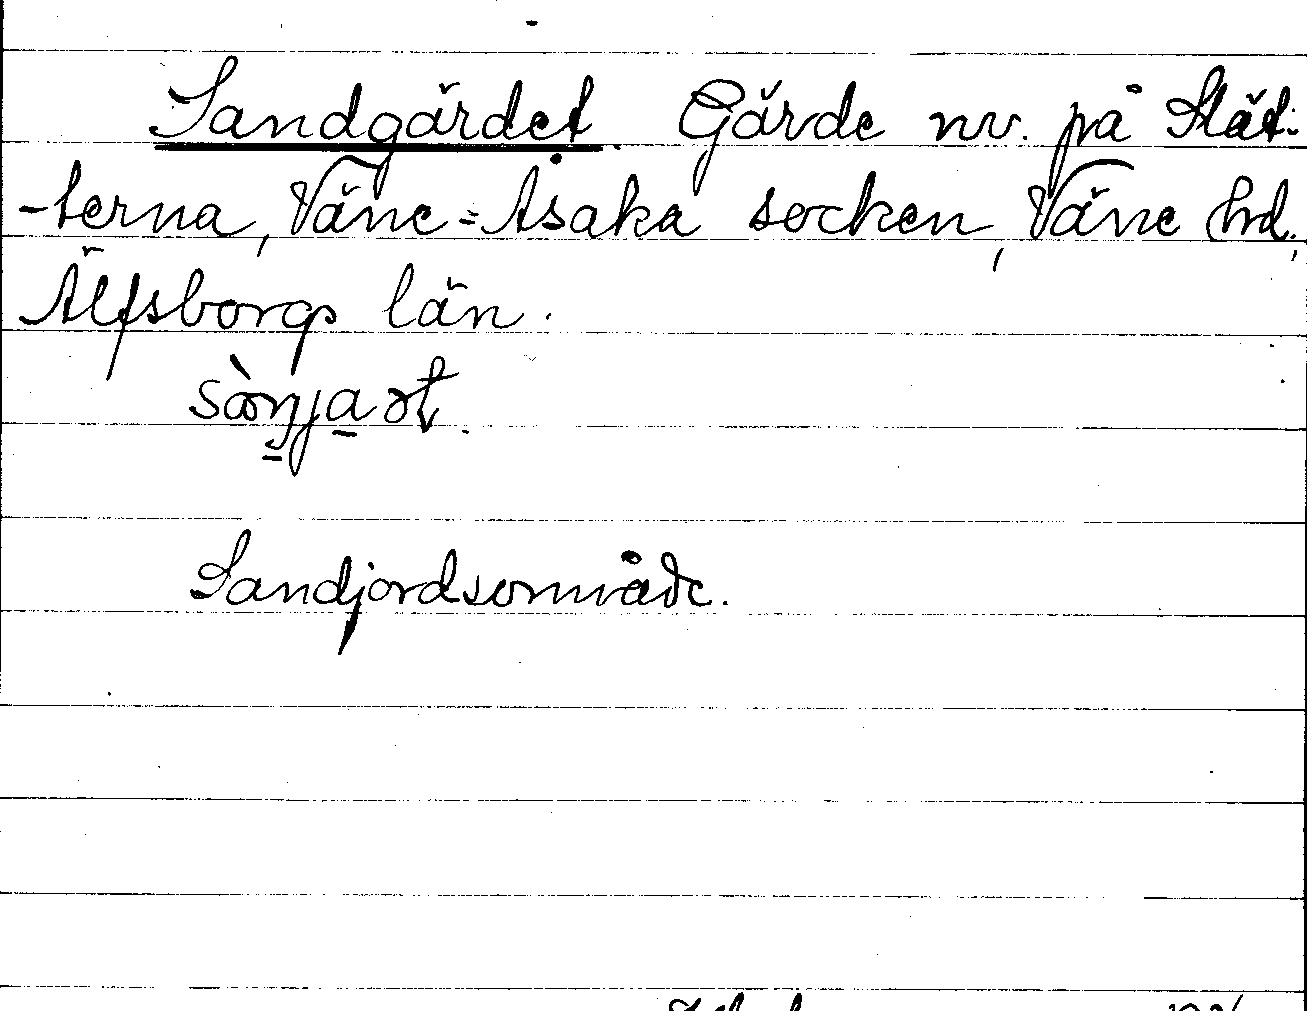 Sandgärdet. Gärde nv. på Slät-
-terna, Väne-Åsaka socken, Väne hd.,
Älfsborgs län.
Sandjordsområde.